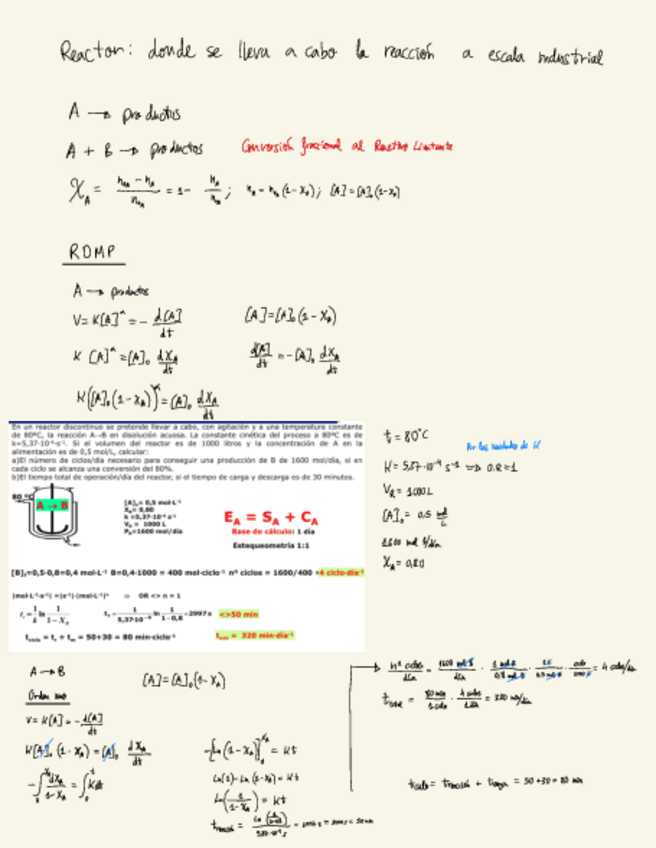 Reactor: donde se lleva a cabo la reacción a escala industrial
A → productos
A + B → productos
Conversión fraccional al Reactivo Limitante
X_A = (n_A0 - n_A)/n_A0 = 1 - n_A/n_A0 ; n_A = n_A0 (1-X_A); [A]=[A]₀(1-X_A)
RDMP
A → productos
V = K[A]^n = - d[A]/dt
[A]=[A]₀(1-X_A)
K [A]^n = [A]₀ dX_A/dt
d[A]/dt = -[A]₀ dX_A/dt
K([A]₀(1-X_A))^n = [A]₀ dX_A/dt
En un reactor discontinuo se pretende llevar a cabo, con agitación y a una temperatura constante
de 80ºC, la reacción A→B en disolución acuosa. La constante cinética del proceso a 80ºC es de
k=5,37·10⁻⁴·s⁻¹. Si el volumen del reactor es de 1000 litros y la concentración de A en la
alimentación es de 0,5 mol/L, calcular:
a)El número de ciclos/día necesario para conseguir una producción de B de 1600 mol/día, si en
cada ciclo se alcanza una conversión del 80%.
b)El tiempo total de operación/día del reactor, si el tiempo de carga y descarga es de 30 minutos.
80 ºC
A → B
[A]₀= 0,5 mol·L⁻¹
X_A= 0,80
k =5,37·10⁻⁴ s⁻¹
V_R = 1000 L
P_B=1600 mol/día
E_A = S_A + C_A
Base de cálculo: 1 día
Estequeometría 1:1
[B]_f=0,5·0,8=0,4 mol·L⁻¹ B=0,4·1000 = 400 mol·ciclo⁻¹ nº ciclos = 1600/400 =4 ciclo·día⁻¹
(mol·L⁻¹·s⁻¹) =(s⁻¹)·(mol·L⁻¹)ⁿ ⇒ OR <> n = 1
t_r = 1/k ln 1/(1-X_A)
t_r = 1/(5,37·10⁻⁴) ln 1/(1-0,8) =2997s <>50 min
t_ciclo = t_r + t_m = 50+30 = 80 min·ciclo⁻¹
= 320 min·día⁻¹
t = 80°C
Por las unidades de K
K = 5,37·10⁻⁴ s⁻¹ ⇒ O.R=1
V_R = 1000L
[A]₀ = 0,5 mol/L
1600 mol B/día
X_A = 0,80
A → B
[A]=[A]₀(1-X_A)
Orden uno
V = K[A] = - d[A]/dt
K[A]₀ (1-X_A) = [A]₀ dX_A/dt
-[Ln(1-X_A)]₀^X_A = Kt
Ln(1) - Ln(1-X_A) = Kt
Ln(1/(1-X_A)) = Kt
= 4 ciclos/día
80 min/1 ciclo · 4 ciclos/1 día = 320 min/día
t ciclo = t reacción + t carga = 50+30 = 80 min